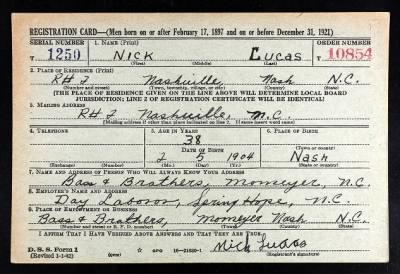 REGISTRATION CARD—(Men born on or after February 17, 1897 and on or before December 31, 1921)
SERIAL NUMBER 1. NAME (Print) ORDER NUMBER
T 1250 Nick Lucas T 10854
(First) (Middle) (Last)
2. PLACE OF RESIDENCE (Print)
RH 2 Nashville, Nash N.C.
(Number and street) (Town, township, village, or city) (County) (State)
[THE PLACE OF RESIDENCE GIVEN ON THE LINE ABOVE WILL DETERMINE LOCAL BOARD
JURISDICTION; LINE 2 OF REGISTRATION CERTIFICATE WILL BE IDENTICAL]
3. MAILING ADDRESS
RH 2 Nashville, N.C.
[Mailing address if other than place indicated on line 2. If same insert word same]
4. TELEPHONE 5. AGE IN YEARS 6. PLACE OF BIRTH
38
DATE OF BIRTH (Town or county)
2 5 1904 Nash
(Exchange) (Number) (Mo.) (Day) (Yr.) (State or country)
7. NAME AND ADDRESS OF PERSON WHO WILL ALWAYS KNOW YOUR ADDRESS
Bass & Brathers, Momeyer, N.C.
8. EMPLOYER'S NAME AND ADDRESS
Day Labosor, Spring Hope, N.C.
9. PLACE OF EMPLOYMENT OR BUSINESS
Bass & Brathers, Momeyer Nash N.C.
(Number and street or R. F. D. number) (Town) (County) (State)
I AFFIRM THAT I HAVE VERIFIED ABOVE ANSWERS AND THAT THEY ARE TRUE.
D. S. S. Form 1
(Revised 1-1-42) (over) GPO 16—21630-1 Nick Lucas
(Registrant's signature)